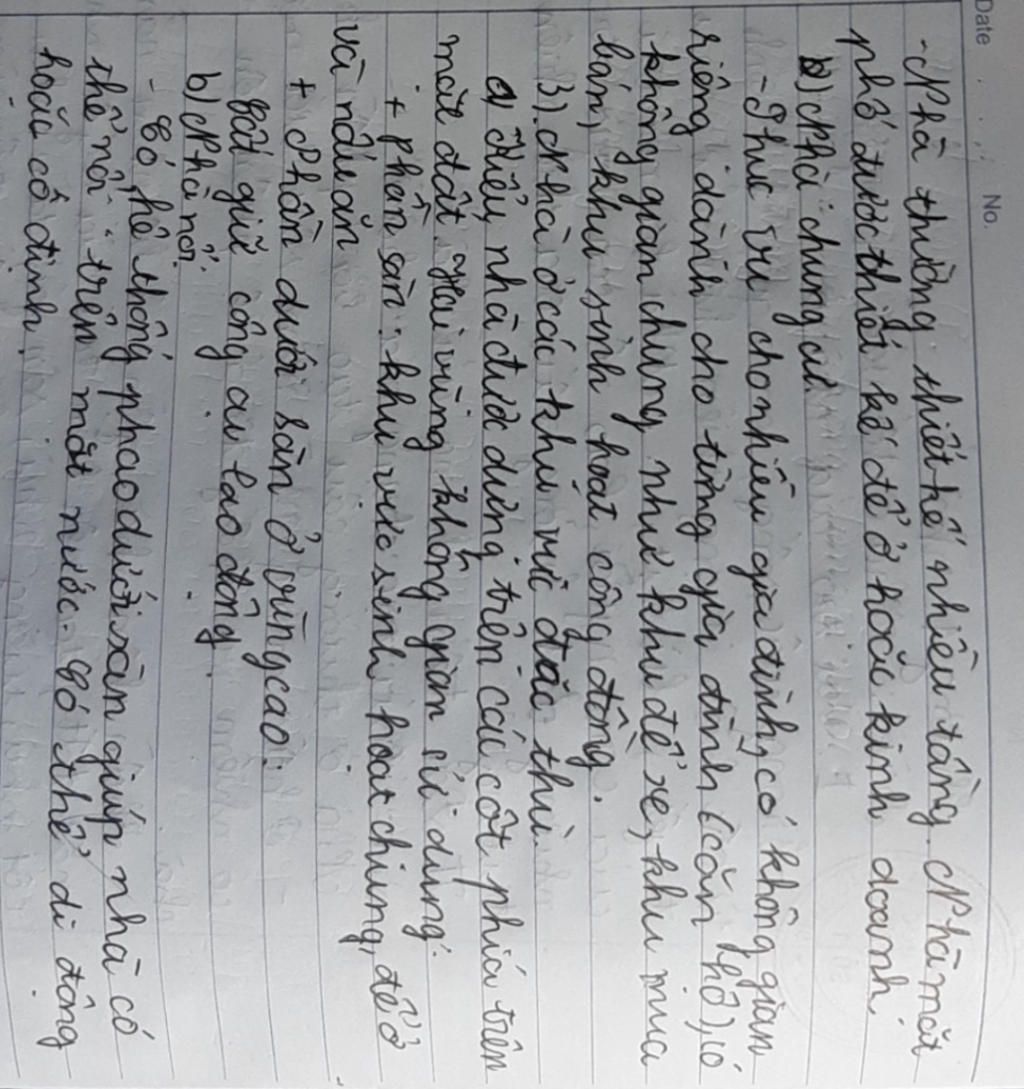 Date No.
- Nhà thường thiết kế nhiều tầng. Nhà mặt
phố được thiết kế để ở hoặc kinh doanh.
b) Nhà chung cư.
- Phục vụ cho nhiều gia đình, có không gian
riêng dành cho từng gia đình (căn hộ), có
không gian chung như khu để xe, khu mua
bán, khu sinh hoạt công đồng.
3). Nhà ở các khu vực đặc thù.
a) Kiểu nhà được dựng trên các cột phía trên
mặt đất gai vùng không gian sử dụng:
+ phần sàn: khu vực sinh hoạt chung, để ở
và nấu ăn
+ Phần dưới sàn ở vùng cao:
Cất giữ công cụ lao động.
b) Nhà nổi:
- Có hệ thống phao dưới sàn giúp nhà có
thể nổi trên mặt nước. Có thể di động
hoặc cố định.